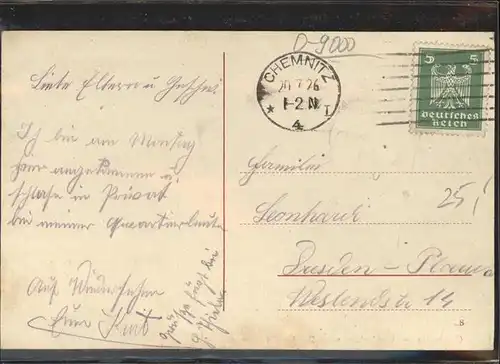 D-9000
CHEMNITZ
20.7.26
1-2 N
* I
4
5 5
Deutsches
Reich
Liebe Eltern u.
Ich bin am Montag
hier angekommen u.
schlafe in Privat
bei meiner Quartiersleute
Auf Wiedersehen
Euer
Familie
Leonhardt
25,-
Dresden-Plauen
14
8